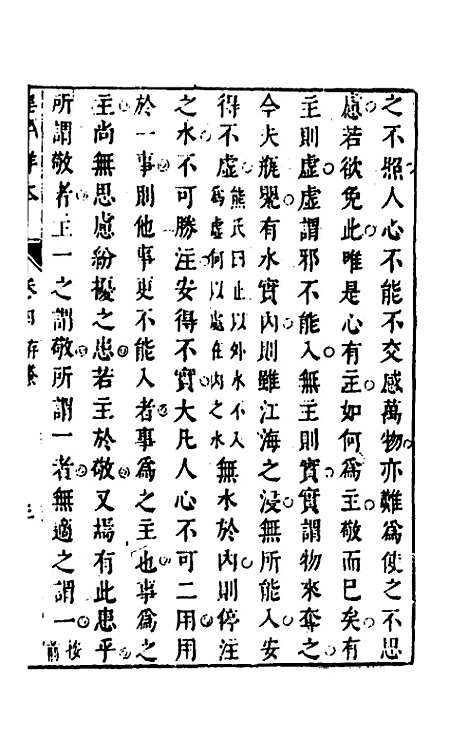 之不照人心不能不交感萬物亦難爲使之不思
慮若欲免此唯是心有主如何爲主敬而已矣有
主則虛虛謂邪不能入無主則實實謂物來奪之
今夫瓶甖有水實內則雖江海之浸無所能入安
得不虛熊氏曰止以外水不入爲虛何以處在內之水無水於內則停注
之水不可勝注安得不實大凡人心不可二用用
於一事則他事更不能入者事爲之主也事爲之
主尚無思慮紛擾之患若主於敬又焉有此患乎
所謂敬者主一之謂敬所謂一者無適之謂一按前
卷四存養